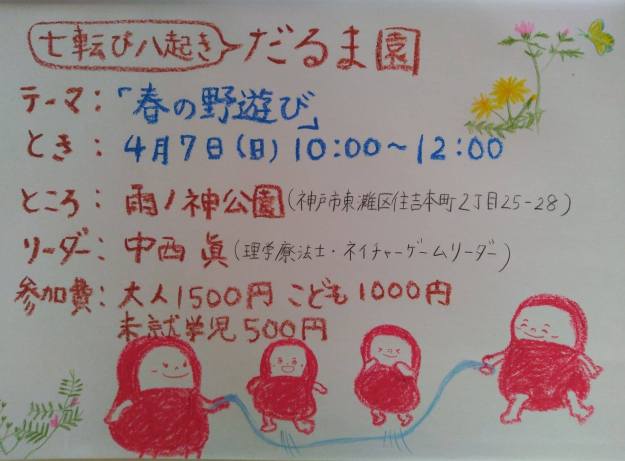 七転び八起き だるま園
テーマ：「春の野遊び」
とき：4月7日(日) 10:00～12:00
ところ：雨ノ神公園(神戸市東灘区住吉本町2丁目25-28)
リーダー：中西 眞(理学療法士・ネイチャーゲームリーダー)
参加費：大人1500円 こども1000円
未就学児500円